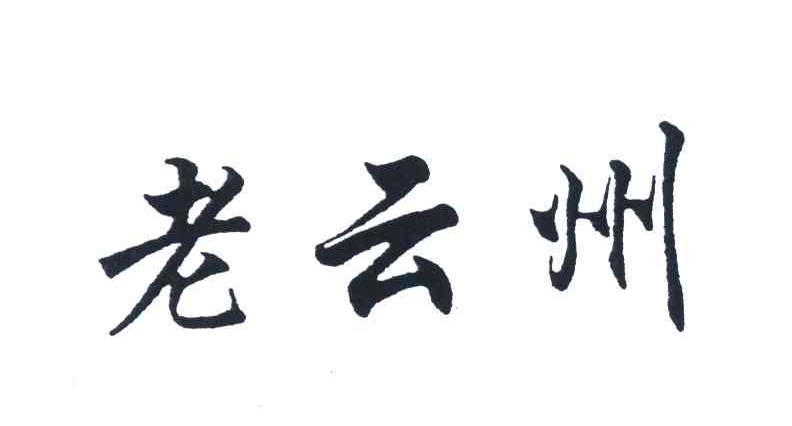 老云州